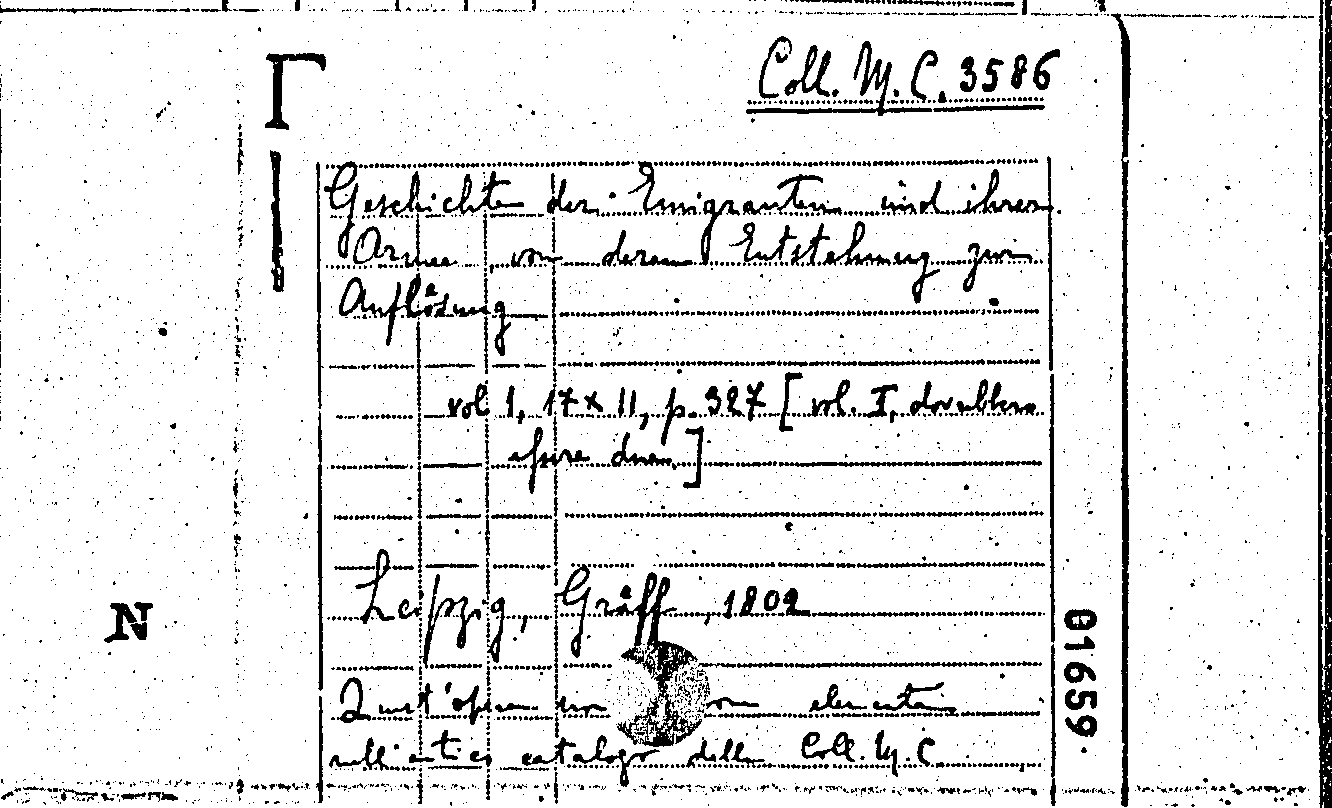 Coll. M. C. 3586
Geschichte der Emigranten und ihrer
Armee, von deren Entstehung zur
Auflösung
vol 1, 17 x 11, p. 327 [vol. I, dovebbero
essere due]
Leipzig, Gräff, 1802
Quest'opera non elencata
nell'antico catalogo della Coll. M. C.
N
01659.